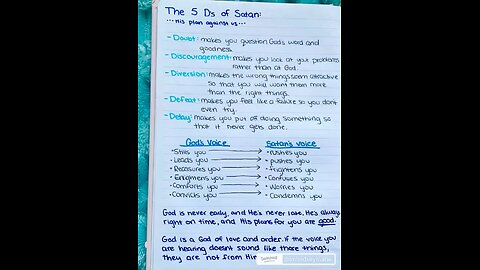 The 5 Ds of Satan:
...His plan against us...
- Doubt: makes you question God's word and
goodness.
- Discouragement: makes you look at your problems
rather than at God.
- Diversion: makes the wrong things seem attractive
so that you will want them more
than the right things.
- Defeat: makes you feel like a failure so you don't
even try.
- Delay: makes you put off doing something so
that it never gets done.
God's Voice Satan's voice
• Stills you → • rushes you
• Leads you → • pushes you
• Reassures you → • frightens you
• Enlightens you → • Confuses you
• Comforts you → • Worries you
• Convicts you → • Condemns you
God is never early, and He's never late, He's always
right on time, and His plans for you are good.
God is a God of love and order. If the voice you
are hearing doesn't sound like these things,
they are not from Him